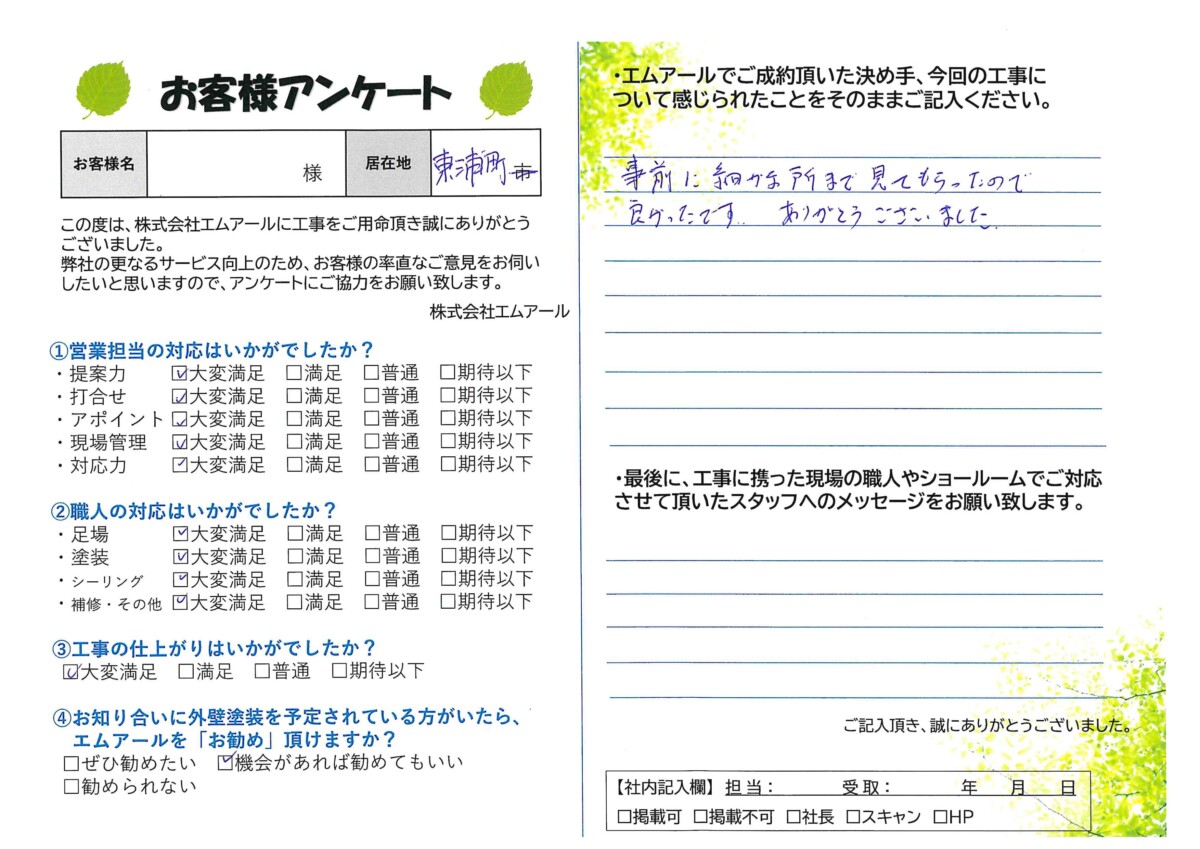 お客様アンケート
お客様名 様 居在地 東浦町 市
この度は、株式会社エムアールに工事をご用命頂き誠にありがとう
ございました。
弊社の更なるサービス向上のため、お客様の率直なご意見をお伺い
したいと思いますので、アンケートにご協力をお願い致します。
株式会社エムアール
①営業担当の対応はいかがでしたか？
・提案力 ☑大変満足 □満足 □普通 □期待以下
・打合せ ☑大変満足 □満足 □普通 □期待以下
・アポイント ☑大変満足 □満足 □普通 □期待以下
・現場管理 ☑大変満足 □満足 □普通 □期待以下
・対応力 ☑大変満足 □満足 □普通 □期待以下
②職人の対応はいかがでしたか？
・足場 ☑大変満足 □満足 □普通 □期待以下
・塗装 ☑大変満足 □満足 □普通 □期待以下
・シーリング ☑大変満足 □満足 □普通 □期待以下
・補修・その他 ☑大変満足 □満足 □普通 □期待以下
③工事の仕上がりはいかがでしたか？
☑大変満足 □満足 □普通 □期待以下
④お知り合いに外壁塗装を予定されている方がいたら、
エムアールを「お勧め」頂けますか？
□ぜひ勧めたい ☑機会があれば勧めてもいい
□勧められない
・エムアールでご成約頂いた決め手、今回の工事に
ついて感じられたことをそのままご記入ください。
事前に細かな所まで見てもらったので
良かったです。ありがとうございました。
・最後に、工事に携った現場の職人やショールームでご対応
させて頂いたスタッフへのメッセージをお願い致します。
ご記入頂き、誠にありがとうございました。
【社内記入欄】 担当： 受取： 年 月 日
□掲載可 □掲載不可 □社長 □スキャン □HP